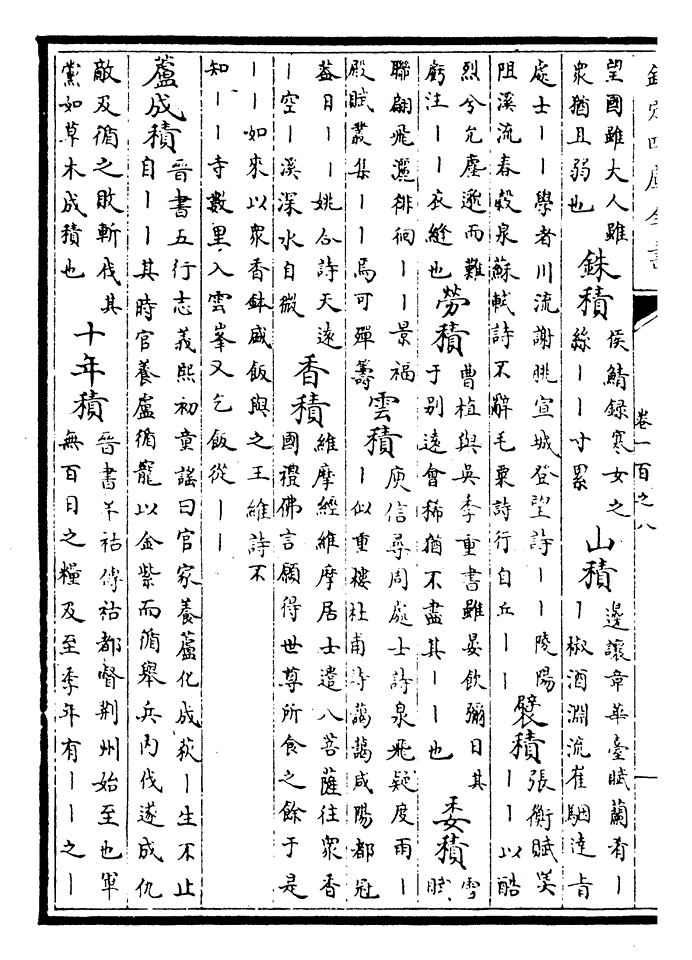 欽定四庫全書
卷一百之八
望國雖大人雖
衆猶且弱也
銖積
侯鯖録寒女之
絲丨丨寸累
山積
邊讓章華臺賦蘭肴丨
丨椒酒淵流崔駰達旨
處士丨丨學者川流謝朓宣城登望詩丨丨陵陽
阻溪流春穀泉蘇軾詩不辭毛粟詩行自丘丨丨
襞積
張衡賦美
丨丨以酷
烈兮允塵邈而難
虧注丨丨衣縫也
勞積
曹植與吳季重書雖晏飲彌日其
于别遠會稀猶不盡其丨丨也
委積
雪
賦
聯翩飛灑徘徊丨丨景福
殿賦叢集丨丨焉可殫籌
雲積
庾信尋周處士詩泉飛疑度雨丨
丨似重樓杜甫詩藹藹咸陽都冠
葢日丨丨姚合詩天遠
丨空丨溪深水自微
香積
維摩經維摩居士遣八菩薩往衆香
國禮佛言願得世尊所食之餘于是
丨丨如來以衆香鉢盛飯與之王維詩不
知丨丨寺數里入雲峯又乞飯從丨丨
蘆成積
晉書五行志義熙初童謡曰官家養蘆化成荻丨生不止
自丨丨其時官養盧循寵以金紫而循舉兵内伐遂成仇
敵及循之敗斬伐其
黨如草木成積也
十年積
晉書羊祜傳祜都督荆州始至也軍
無百日之糧及至季年有丨丨之丨